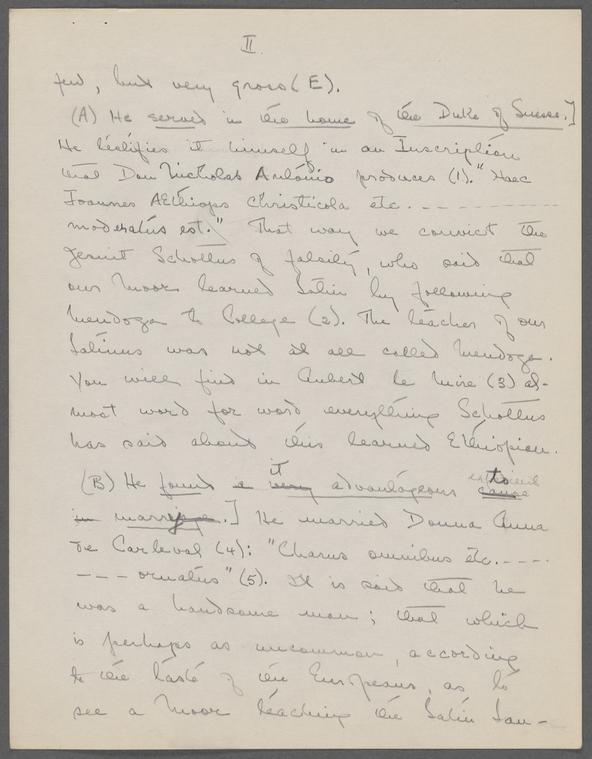 II.
few, but very gross (E).
(A) He served in the home of the Duke of Suesse.]
He testifies it himself in an Inscription
that Don Nicholas António produces (1). "Haec
Joannes AEthiops Christicola etc. - - - - - - - -
moderatus est." That way we convict the
Jesuit Schottus of falsity, who said that
our Moor learned Latin by following
Mendoza to College (2). The teacher of our
Latinus was not at all called Mendoza.
You will find in Aubert le Mire (3) al-
most word for word everything Schottus
has said about this learned Ethiopian.
(B) He found a it very advantageous to
in marriage.] He married Donna Anna
de Carleval (4): "Charus omnibus etc. - - - -
- - - ornatus" (5). It is said that he
was a handsome man; that which
is perhaps as uncommon, according
to the taste of the Europeans, as to
see a Moor teaching the Latin Lan-